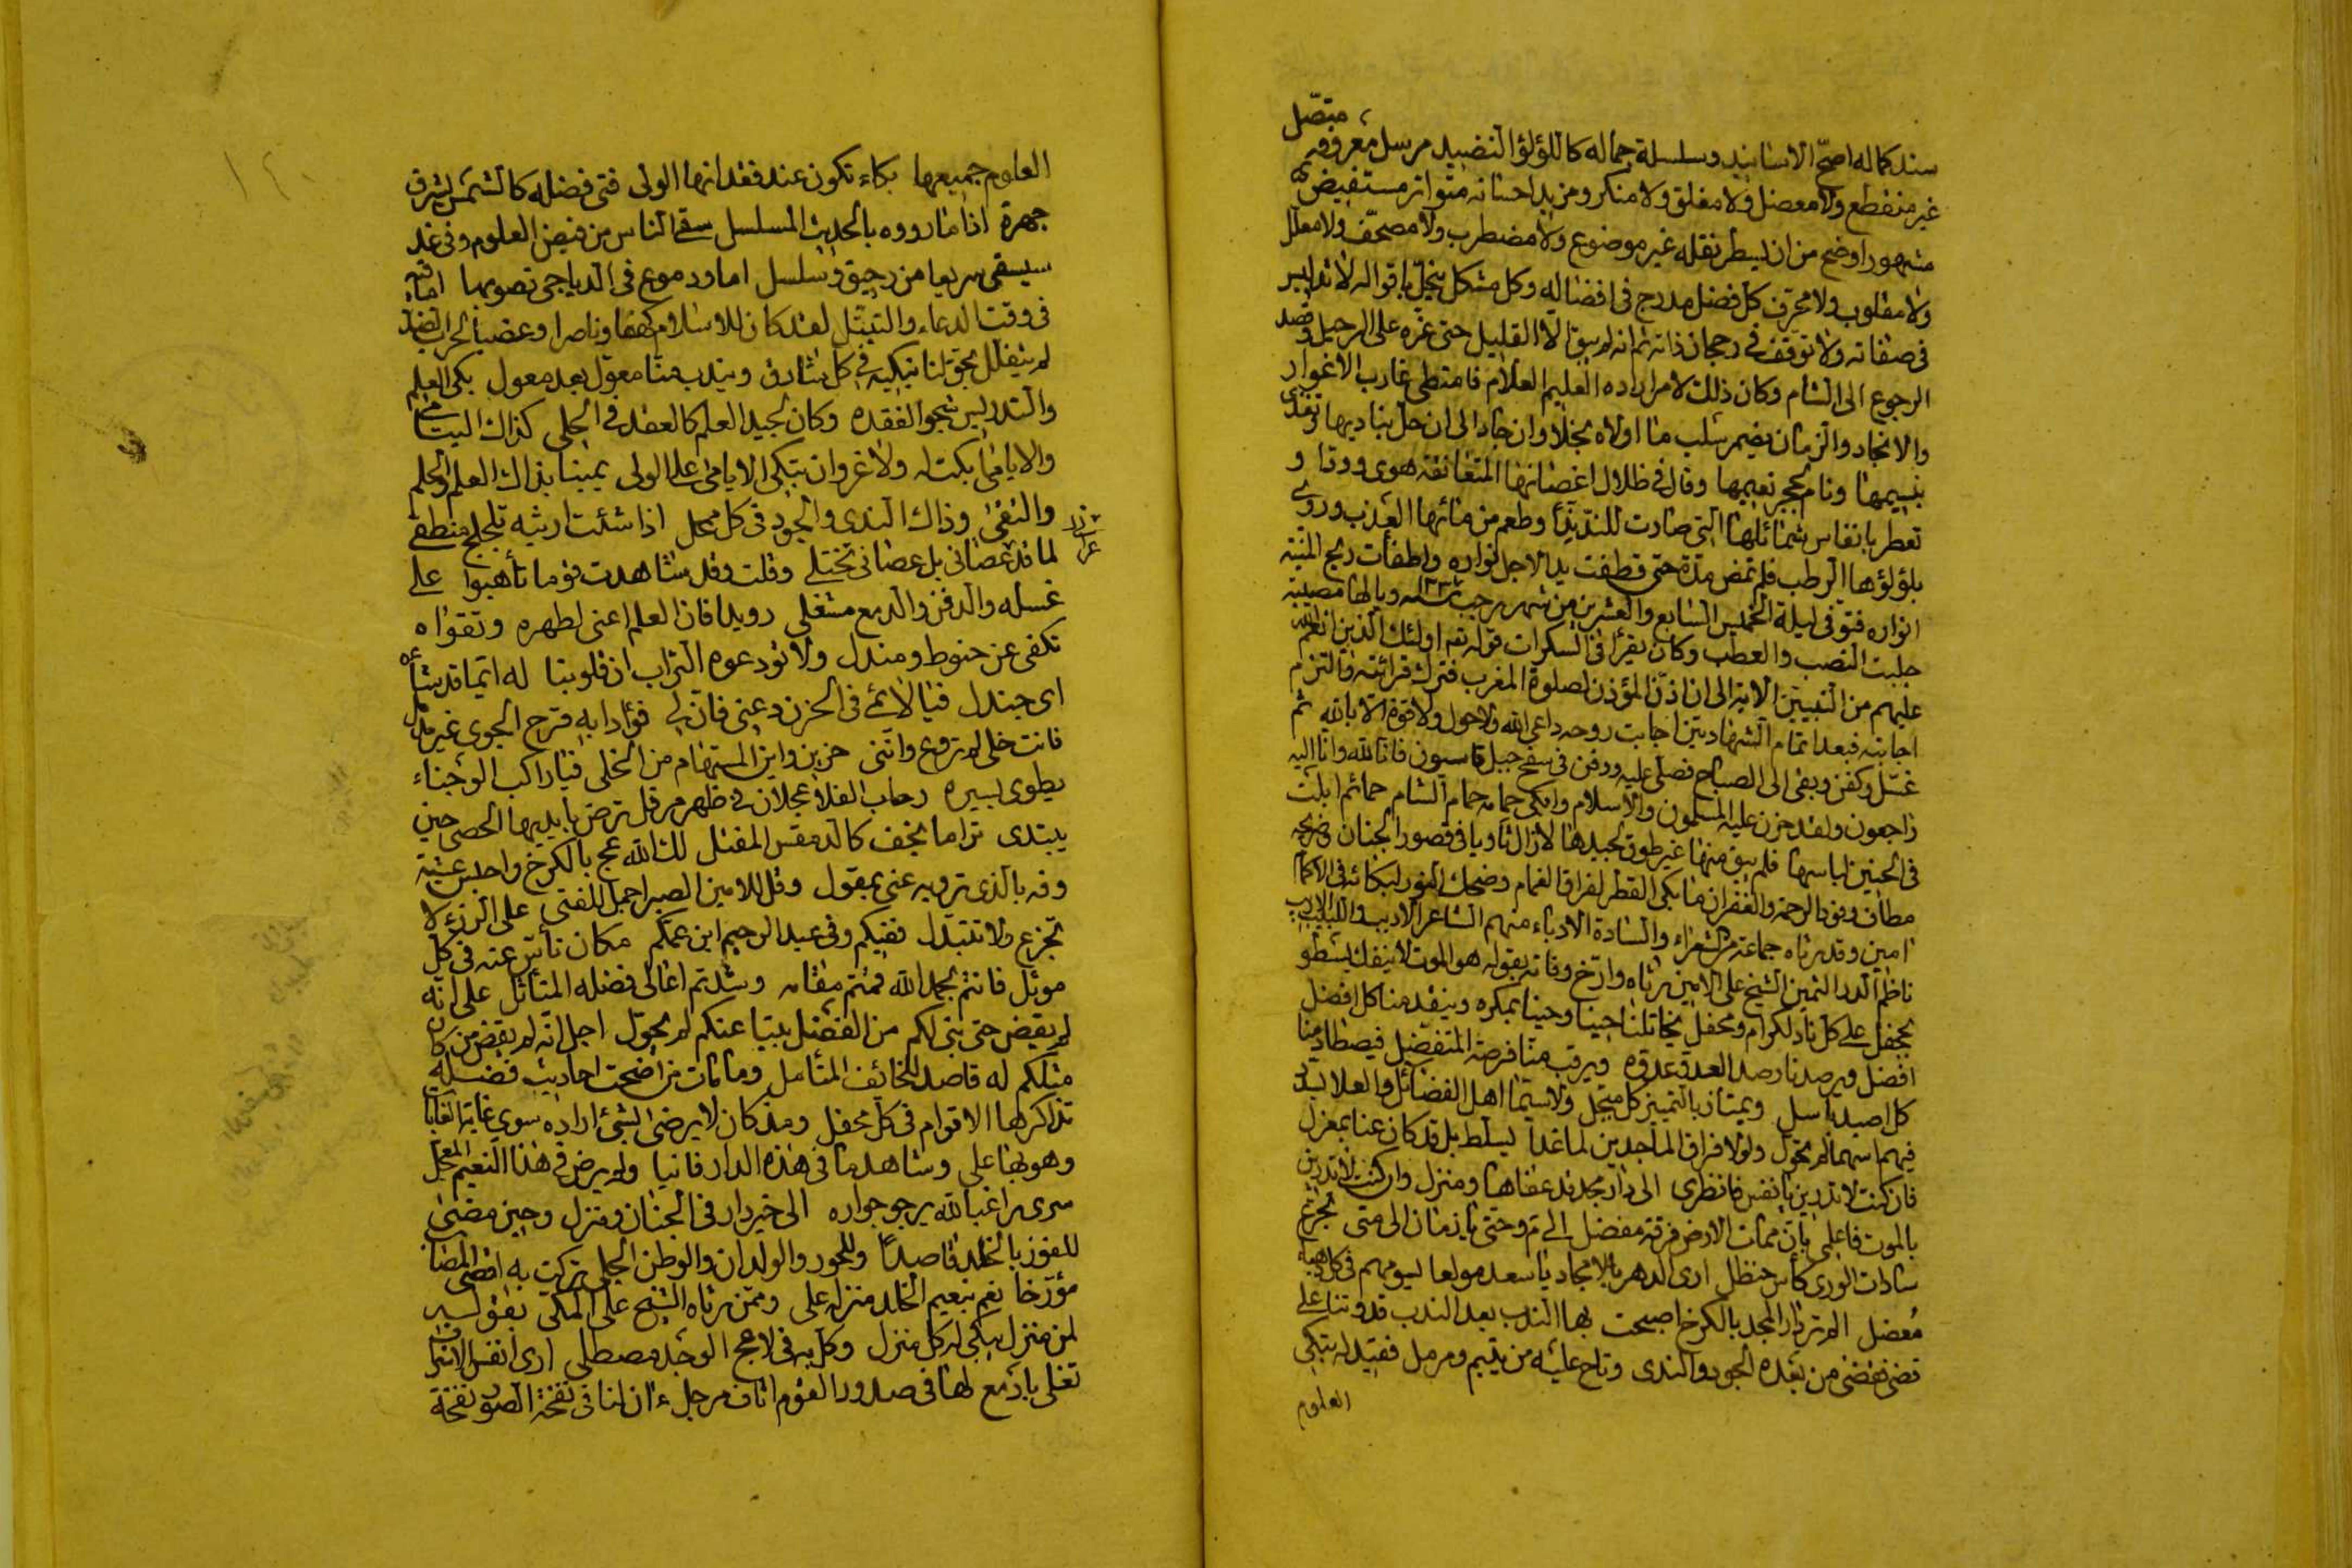 متصل
سند كماله اصحّ الاسانيد وسلسلة جماله كاللؤلؤ النضيد مرسل معروفه
غير منقطع ولا معضل ولا مغلق ولا منكر ومزيد احسانه متواتر مستفيض
مشهور اوضح من ان يسطر نقله غير موضوع ولا مضطرب ولا مصحّف ولا معلل
ولا مقلوب ولا محرّف كل فضل مدرج فى افضاله وكل مشكل ينجلّ باقواله لا تدليس
فى صفاته ولا توقف فى رجحان ذاته ثم انه لم يبق الّا القليل حتى عزم على الرحيل وقصد
الرجوع الى الشام وكان ذلك لامر اراده العليم العلام فامتطى غارب الاغوار
والانجاد والزمان يضمر سلب ما اولاه بخلا وان جاد الى ان حل بناديها وتغذى
بنسيمها ونام بحجر نعيمها وقال فى ظلال اغصانها المتعانقة هوى وودا و
تعطر بانفاس شمائلها التى صارت للندّ ندّا وطعم من مائها العذب وروى
بلؤلؤها الرطب فلم تمض مدة حتى قطفت يد الاجل نواره واطفأت ريح المنية
انواره فتوفى ليلة الخميس السابع والعشرين من شهر رجب ويالها مصيبة
جلبت النصب والعطب وكان يقرأ فى السكرات قوله تع اولئك الذين انعم الله
عليهم من النبيين الاية الى ان اذّن المؤذن لصلوة المغرب فترك قرائته والتزم
اجابته فبعد اتمام الشهادتين اجابت روحه داعى الله ولا حول ولا قوة الا بالله ثم
غسّل وكفن وبقى الى الصباح فصلى عليه ودفن فى سفح جبل قاسيون فانا لله وانا اليه
راجعون ولقد حزن عليه المسلمون والاسلام وابكى حمامه حمام الشام حمائما ابلت
فى الحنين لباسها فلم يبق منها غير طوق بجيدها لا زال ثاويا فى قصور الجنان وضريحه
مطاف وفود الرحمة والغفران ما بكى القطر لفراق الغمام وضحك النور لبكائه فى الاكمام
امين وقد رثاه جماعة من الشعراء والسادة الادباء منهم الشاعر الاديب واللبيب الاريب
ناظم الدر الثمين الشيخ على الامين رثاه وارّخ وفاته بقوله هو الموت لا ينفك يسطو
بجحفل على كل ناد لكرام ومحفل يخاتلنا حينا وحينا بمكره وينقد منا كل افضل
افضل ويرصدنا رصد العدو عدوه ويرقب منا فرصة المتفضل فيصطاد منا
كل اصيد باسل ويمتاز بالتمييز كل مبجل ولا سيما اهل الفضائل والعلا
فيهم سهما لم يحول ولولا فراق الماجدين لما غدا يسلط بل قد كان عنا بمعزل
فان كنت لا تدرين يا نفس فانظرى الى دار مجد قد عفاها ومنزل وان كنت لا تدرين
بالموت فاعلمى بان ممات الارض فرقة مفضل الى م وحتى يا زمان الى متى تجرّع
سادات الورى كأس حنظل ارى الدهر بالامجاد يا سعد مولعا ليومهم فى كل دهياء
معضل الم تر دار المجد بالكرخ اصبحت بها الندب بعد الندب قدوتنا على
قضى فقضى من بعده الجود والندى وناح عليه من يتيم ومرمل فقيد له تبكى
العلوم
العلوم جميعها بكاء تكون عند فقدانها الولى فتى فضله كالشمس يشرق
جهرة اذا ما رووه بالحديث المسلسل سقى الناس من فيض العلوم وفى غد
سيسقى سريعا من رحيق وسلسل اما ودموع فى الدياجى تصوبها
فى وقت الدعاء والتبتل لقد كان للاسلام كهفا وناصرا وعضبا
لم يتفلل يحق لنا نبكيه فى كل شارق ويندب منا معول بعد معول بكى العلم
والتدريس شجوا لفقده وكان لجيد العلم كالعقد فى الحلى كذاك اليتامى
والايامى بكت له ولا غرو ان تبكى الايامى على الولى يمينا بذاك العلم والحلم
والتقى وذاك الندى والجود فى كل محل اذا شئت ارثيه تلجلج منطقى
لما قد عصانى بل عصانى تخيلى وقلت وقد شاهدت قوما تأهبوا على
غسله والدفن والدمع مشغلى رويدا فان العلم اغنى لطهره وتقواه
تكفى عن حنوط ومندل ولا تودعوه التراب ان قلوبنا له
اى جندل فيا لائمى فى الحزن دعنى فان لى فؤادا به قرح الجوى غير مدمل
فانت خلى لم تروع واننى حزين واين المستهام من الخلى فيا راكب الوجناء
يطوى بسيره رحاب الفلا عجلان فى ظهر مرقل ترض بايديها الحصى حين
يبتدى تراما بخف كالدمقس المفتل لك الله عج بالكرخ واحبس عشية
وفه بالذى ترويه عنى بمقول وقل للامين الصبر اجمل للفتى على الرزء لا
تجزع ولا تتبدل ففيكم وفى عبد الرحيم ابن عمكم مكان تأسّ عنه فى كل
موئل فانتم بحمد الله قمتم مقامه وشدتم اعالى فضله المتأثل على انه
لم يقض حتى بنى لكم من الفضل بيتا عنكم لم يحول اجل انه لم يقض من كان
مثلكم له قاصد الخائف المتأمل وما مات من اضحت احاديث فضله
تذاكرها الاقوام فى كل محفل ومذ كان لا يرضى لشئ اراده سوى غاية الغايات
وهو بها على وشاهد ما فى هذه الدار فانيا ولم يرض فى هذا النعيم المعجل
سرى راغبا لله يرجو جواره الى خير دار فى الجنان ومنزل وحين مضى
للفوز بالخلد قاصدا وللحور والولدان والوطن الجلى تركت به اقصى المضا
مؤرّخا نعم بنعيم الخلد منزله على وممن رثاه الشيخ على المكى بقوله
لمن منزل يبكى له كل منزل وكل به فى لاعج الوجد مصطلى ارى انفس الاشراف
تغلى بادمع لها فى صدور القوم اثاف مرجل ء ان لنا فى نفخة الصور نفخة